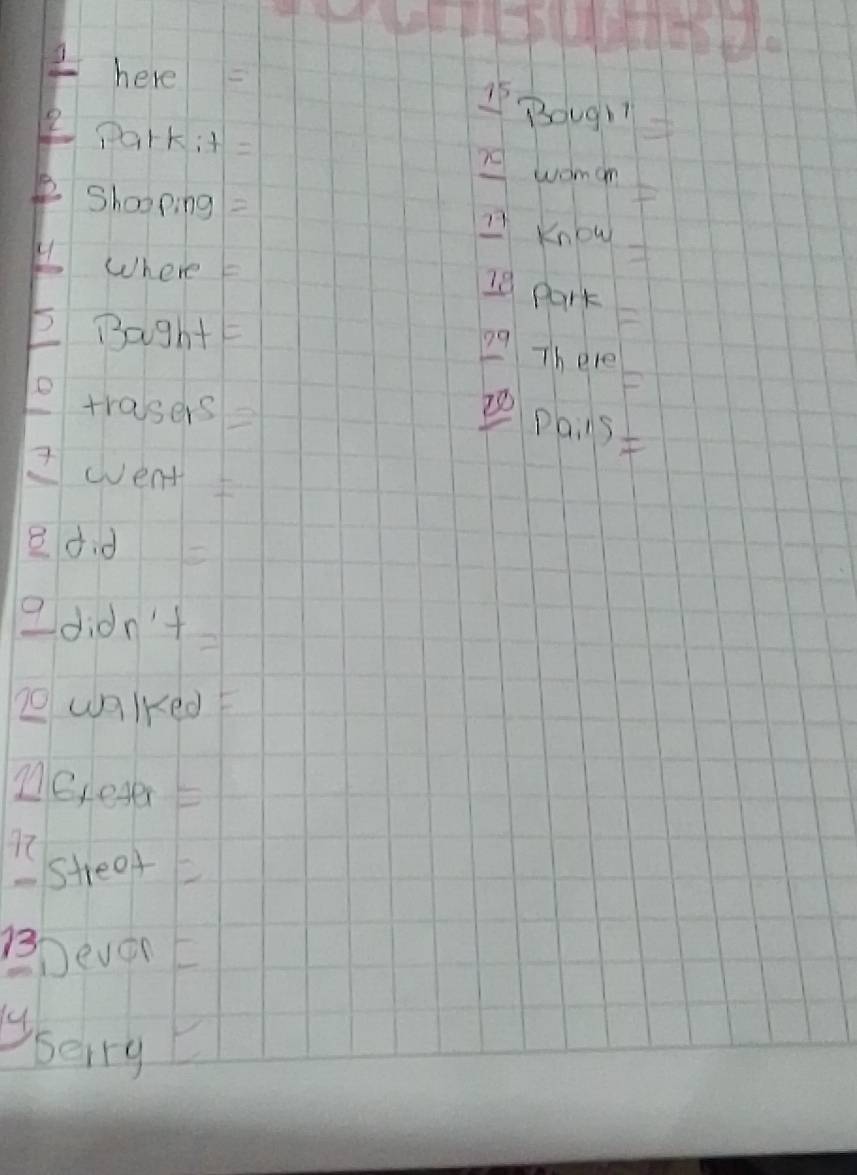 VOCABULARY.
1 here =
2 Parkit =
3 Shooping =
4 Where =
5 Bought =
6 trasers =
7 Went =
8 did =
9 didn't =
10 walked =
11 Exeter =
12 Street =
13 Devon =
14 Serry =
15 Bought =
16 woman =
17 Know =
18 Park =
19 There =
20 Pails =